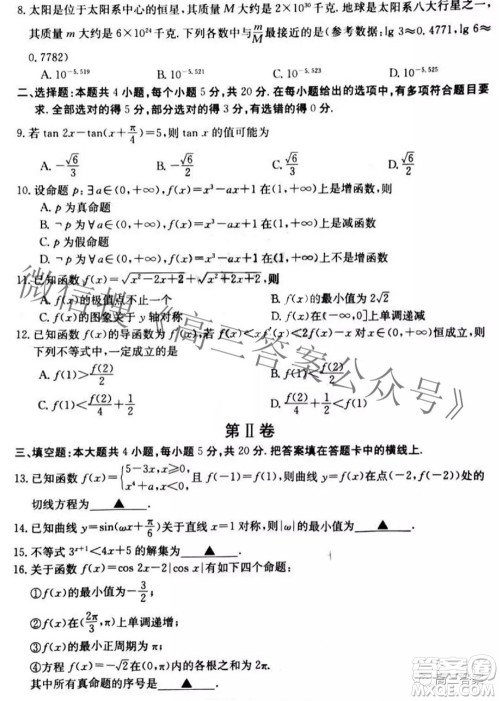 8. 太阳是位于太阳系中心的恒星,其质量 M 大约是 2×10³⁰ 千克. 地球是太阳系八大行星之一,
其质量 m 大约是 6×10²⁴ 千克. 下列各数中与 m/M 最接近的是(参考数据:lg 3≈0.4771, lg 6≈
0.7782)
A. 10^{-5.519} B. 10^{-5.521} C. 10^{-5.523} D. 10^{-5.525}
二、选择题:本大题共 4 小题,每个小题 5 分,共 20 分. 在每小题给出的选项中,有多项符合题目要
求. 全部选对的得 5 分,部分选对的得 2 分,有选错的得 0 分.
9. 若 tan 2x-tan(x+π/4)=5,则 tan x 的值可能为
A. -√6/3 B. -√6/2 C. √6/3 D. √6/2
10. 设命题 p:∃a∈(0,+∞),f(x)=x³-ax+1 在(1,+∞)上是增函数,则
A. p 为真命题
B. ¬p 为∀a∈(0,+∞),f(x)=x³-ax+1 在(1,+∞)上是减函数
C. p 为假命题
D. ¬p 为∀a∈(0,+∞),f(x)=x³-ax+1 在(1,+∞)上不是增函数
11. 已知函数 f(x)=√(x²-2x+2)+√(x²+2x+2),则
A. f(x)的极值点不止一个 B. f(x)的最小值为 2√2
C. f(x)的图象关于 y 轴对称 D. f(x)在(-∞,0]上单调递减
12. 已知函数 f(x)的导函数为 f′(x),若 f(x)<xf′(x)<2f(x)-x 对 x∈(0,+∞)恒成立,则
下列不等式中,一定成立的是
A. f(1)>f(2)/2 B. f(1)<f(2)/2
C. f(1)<f(2)/4+1/2 D. f(2)/4+1/2<f(1)
第Ⅱ卷
三、填空题:本大题共 4 小题,每小题 5 分,共 20 分. 把答案填在答题卡中的横线上.
13. 已知函数 f(x)={5-3x,x≥0, x⁴+a,x<0, 且 f(-1)=f(1),则曲线 y=f(x)在点(-2,f(-2))处的
切线方程为 ▲ .
14. 已知曲线 y=sin(ωx+π/6)关于直线 x=1 对称,则|ω|的最小值为 ▲ .
15. 不等式 3^{x+1}<4x+5 的解集为 ▲ .
16. 关于函数 f(x)=cos 2x-2|cos x|有如下四个命题:
①f(x)的最小值为-3/2;
②f(x)在(2π/3,π)上单调递增;
③f(x)的最小正周期为 π;
④方程 f(x)=-√2在(0,π)内的各根之和为 2π.
其中所有真命题的序号是 ▲ .
微信搜《高三答案公众号》
高三答案